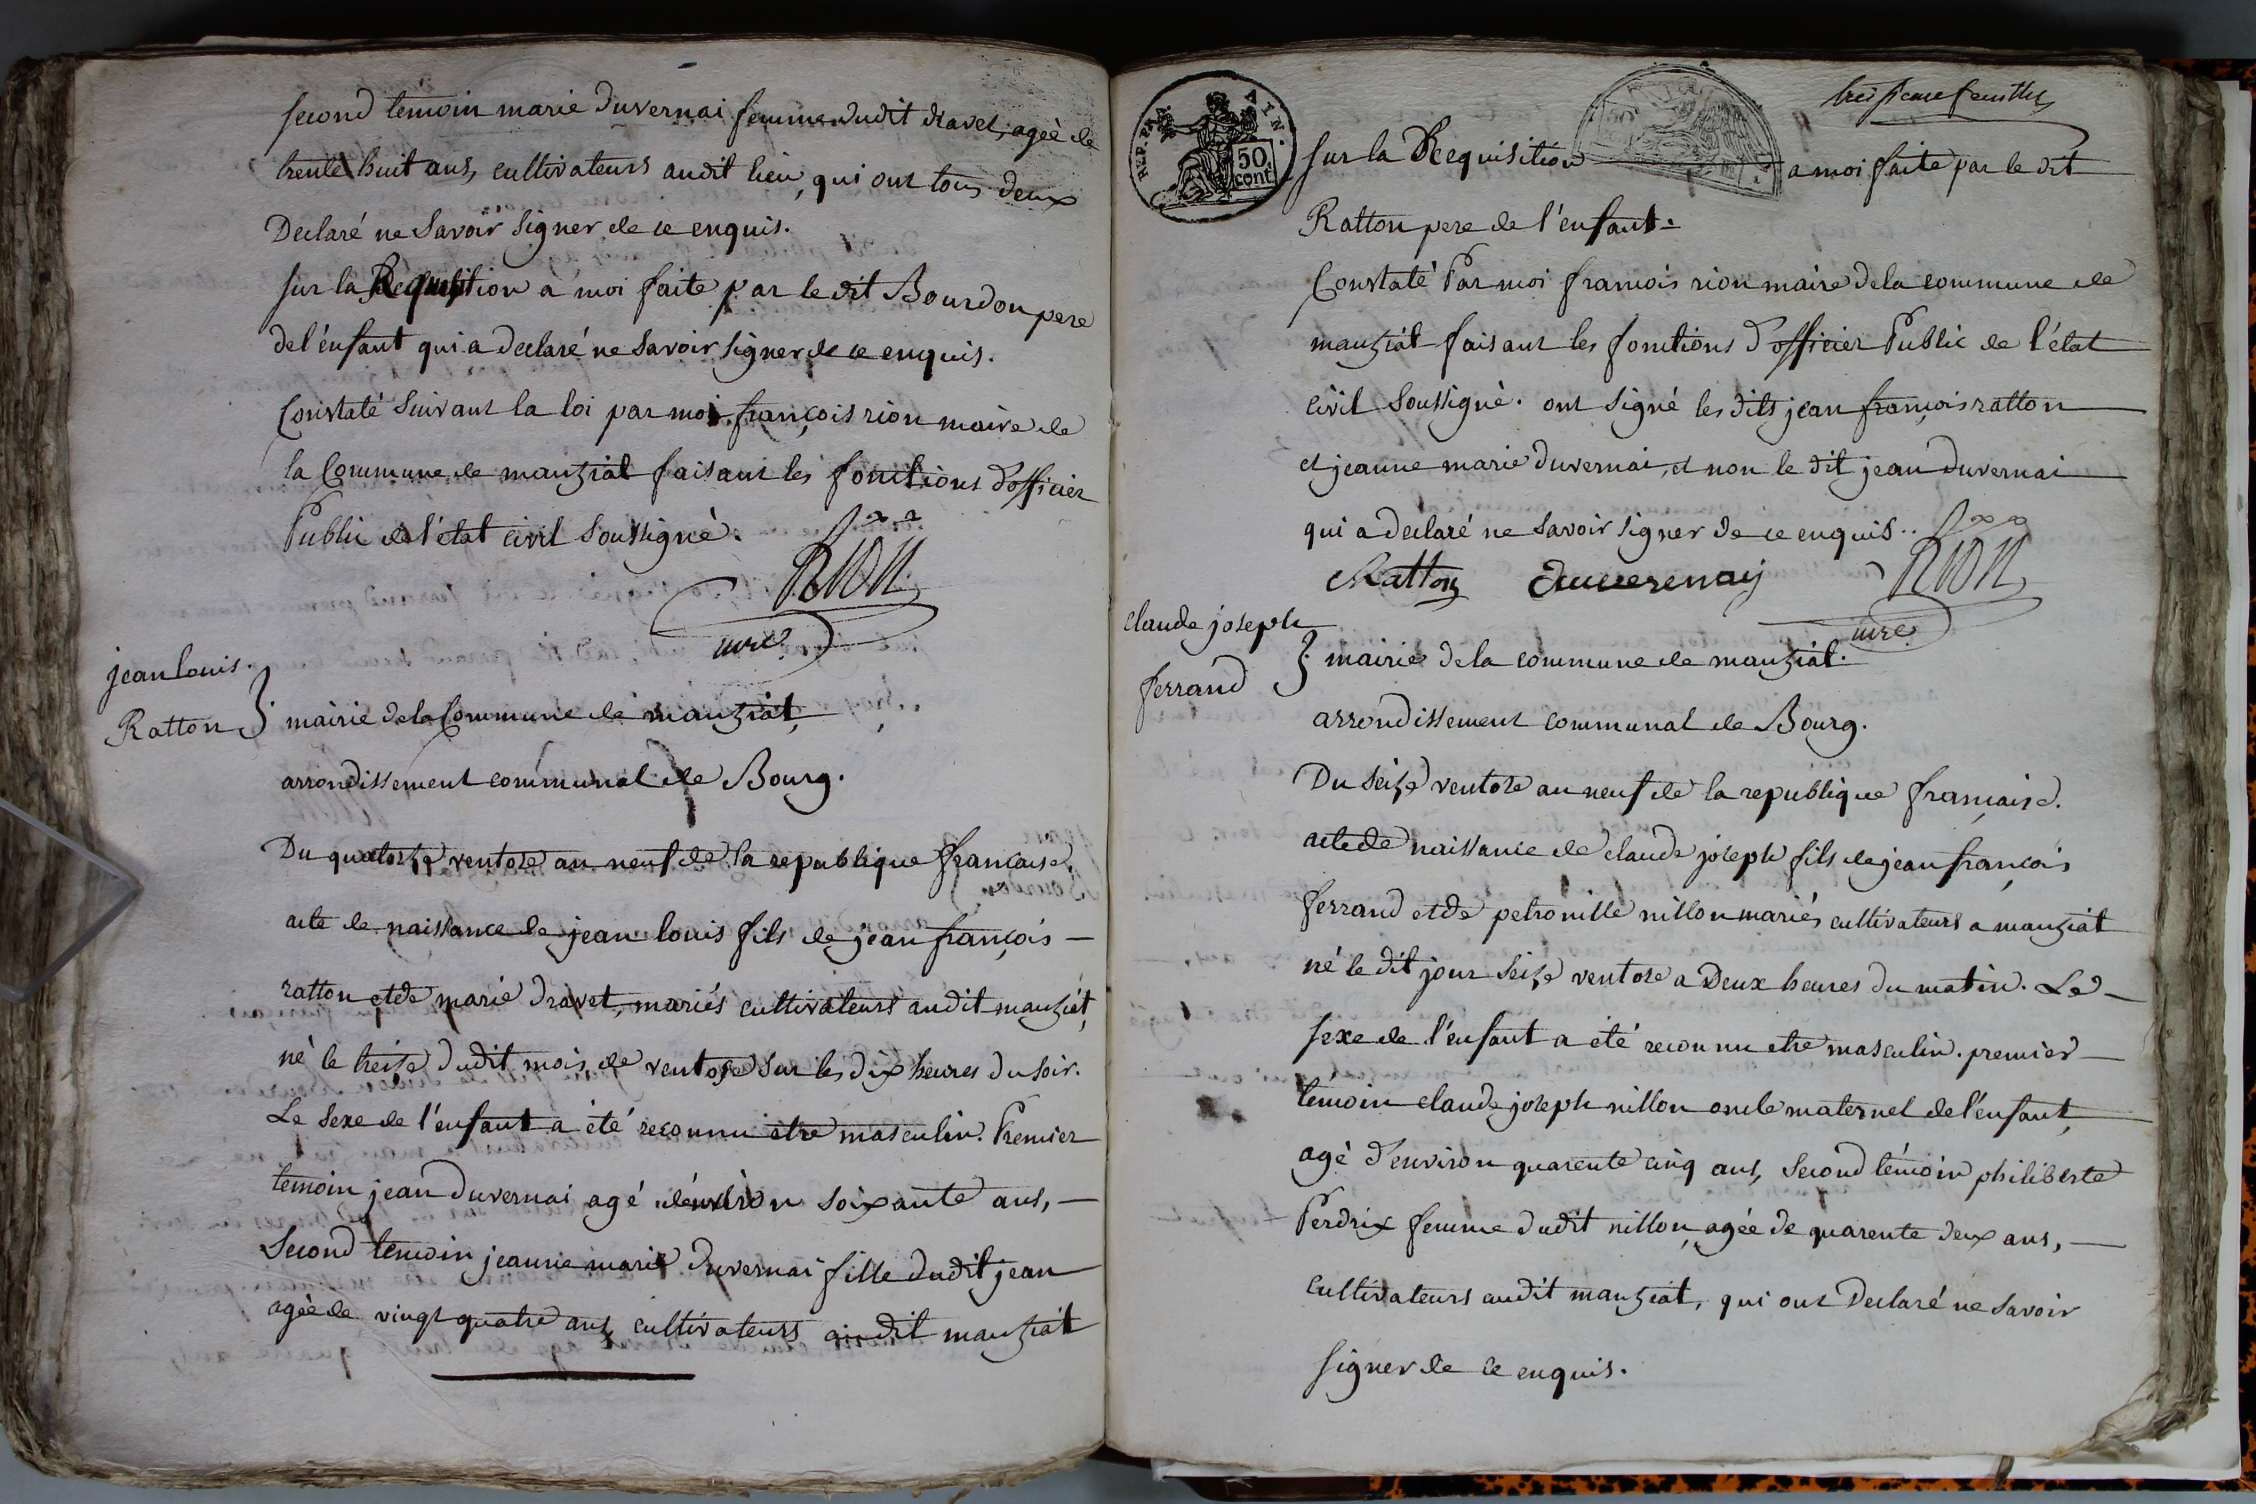 second temoin marie duvernai femme dudit dravet, ageè de
trente huit ans, cultivateurs audit lieu, qui ont tous deux
Declaré ne Savoir Signer de ce enquis.
sur la Requisition a moi faite par le dit Bourdon pere
de l'enfant qui a declaré ne savoir signer de ce enquis.
Constaté suivant la loi par moi françois rion maire de
la Commune de manziat faisant les fonctions d'officier
Public de l'état civil soussigné.
RION
mre
jean louis
Ratton
mairie de la Commune de manziat,
arrondissement communal de Bourg.
Du quatorze ventose an neuf de la republique française,
acte de naissance de jean louis fils de jean françois —
ratton et de marie dravet, mariés cultivateurs audit manziat,
né le treize dudit mois de ventose sur les dix heures du soir.
Le Sexe de l'enfant a été reconnu être masculin. Premier
temoin jean duvernai agé d'environ soixante ans, —
Second temoin jeanne marie duvernai fille dudit jean
ageè de vingt quatre ans, cultivateurs audit manziat
REP. FRA. AIN.
50 cent
treisieme feuillet
sur la Requisition a moi faite par le dit
Ratton pere de l'enfant.
Constaté Par moi francois rion maire de la commune de
manziat faisant les fonctions d'officier Public de l'état
civil soussigné. ont signé les dits jean françois ratton
et jeanne marie duvernai, et non le dit jean duvernai
qui a declaré ne savoir signer de ce enquis..
Ratton Duuerenay RION
mre
claude joseph
ferrand
mairie de la commune de manziat.
arrondissement communal de Bourg.
Du seize ventose an neuf de la republique française.
acte de naissance de claude joseph fils de jean françois
ferrand et de petronille nillon mariés cultivateurs a manziat
né le dit jour seize ventose a Deux heures du matin. Le —
sexe de l'enfant a été reconnu etre masculin. premier —
témoin claude joseph nillon oncle maternel de l'enfant,
agé d'environ quarente cinq ans, second témoin philiberte
Perdrix femme dudit nillon, agée de quarente deux ans, —
cultivateurs audit manziat, qui ont Declaré ne savoir
signer de ce enquis.